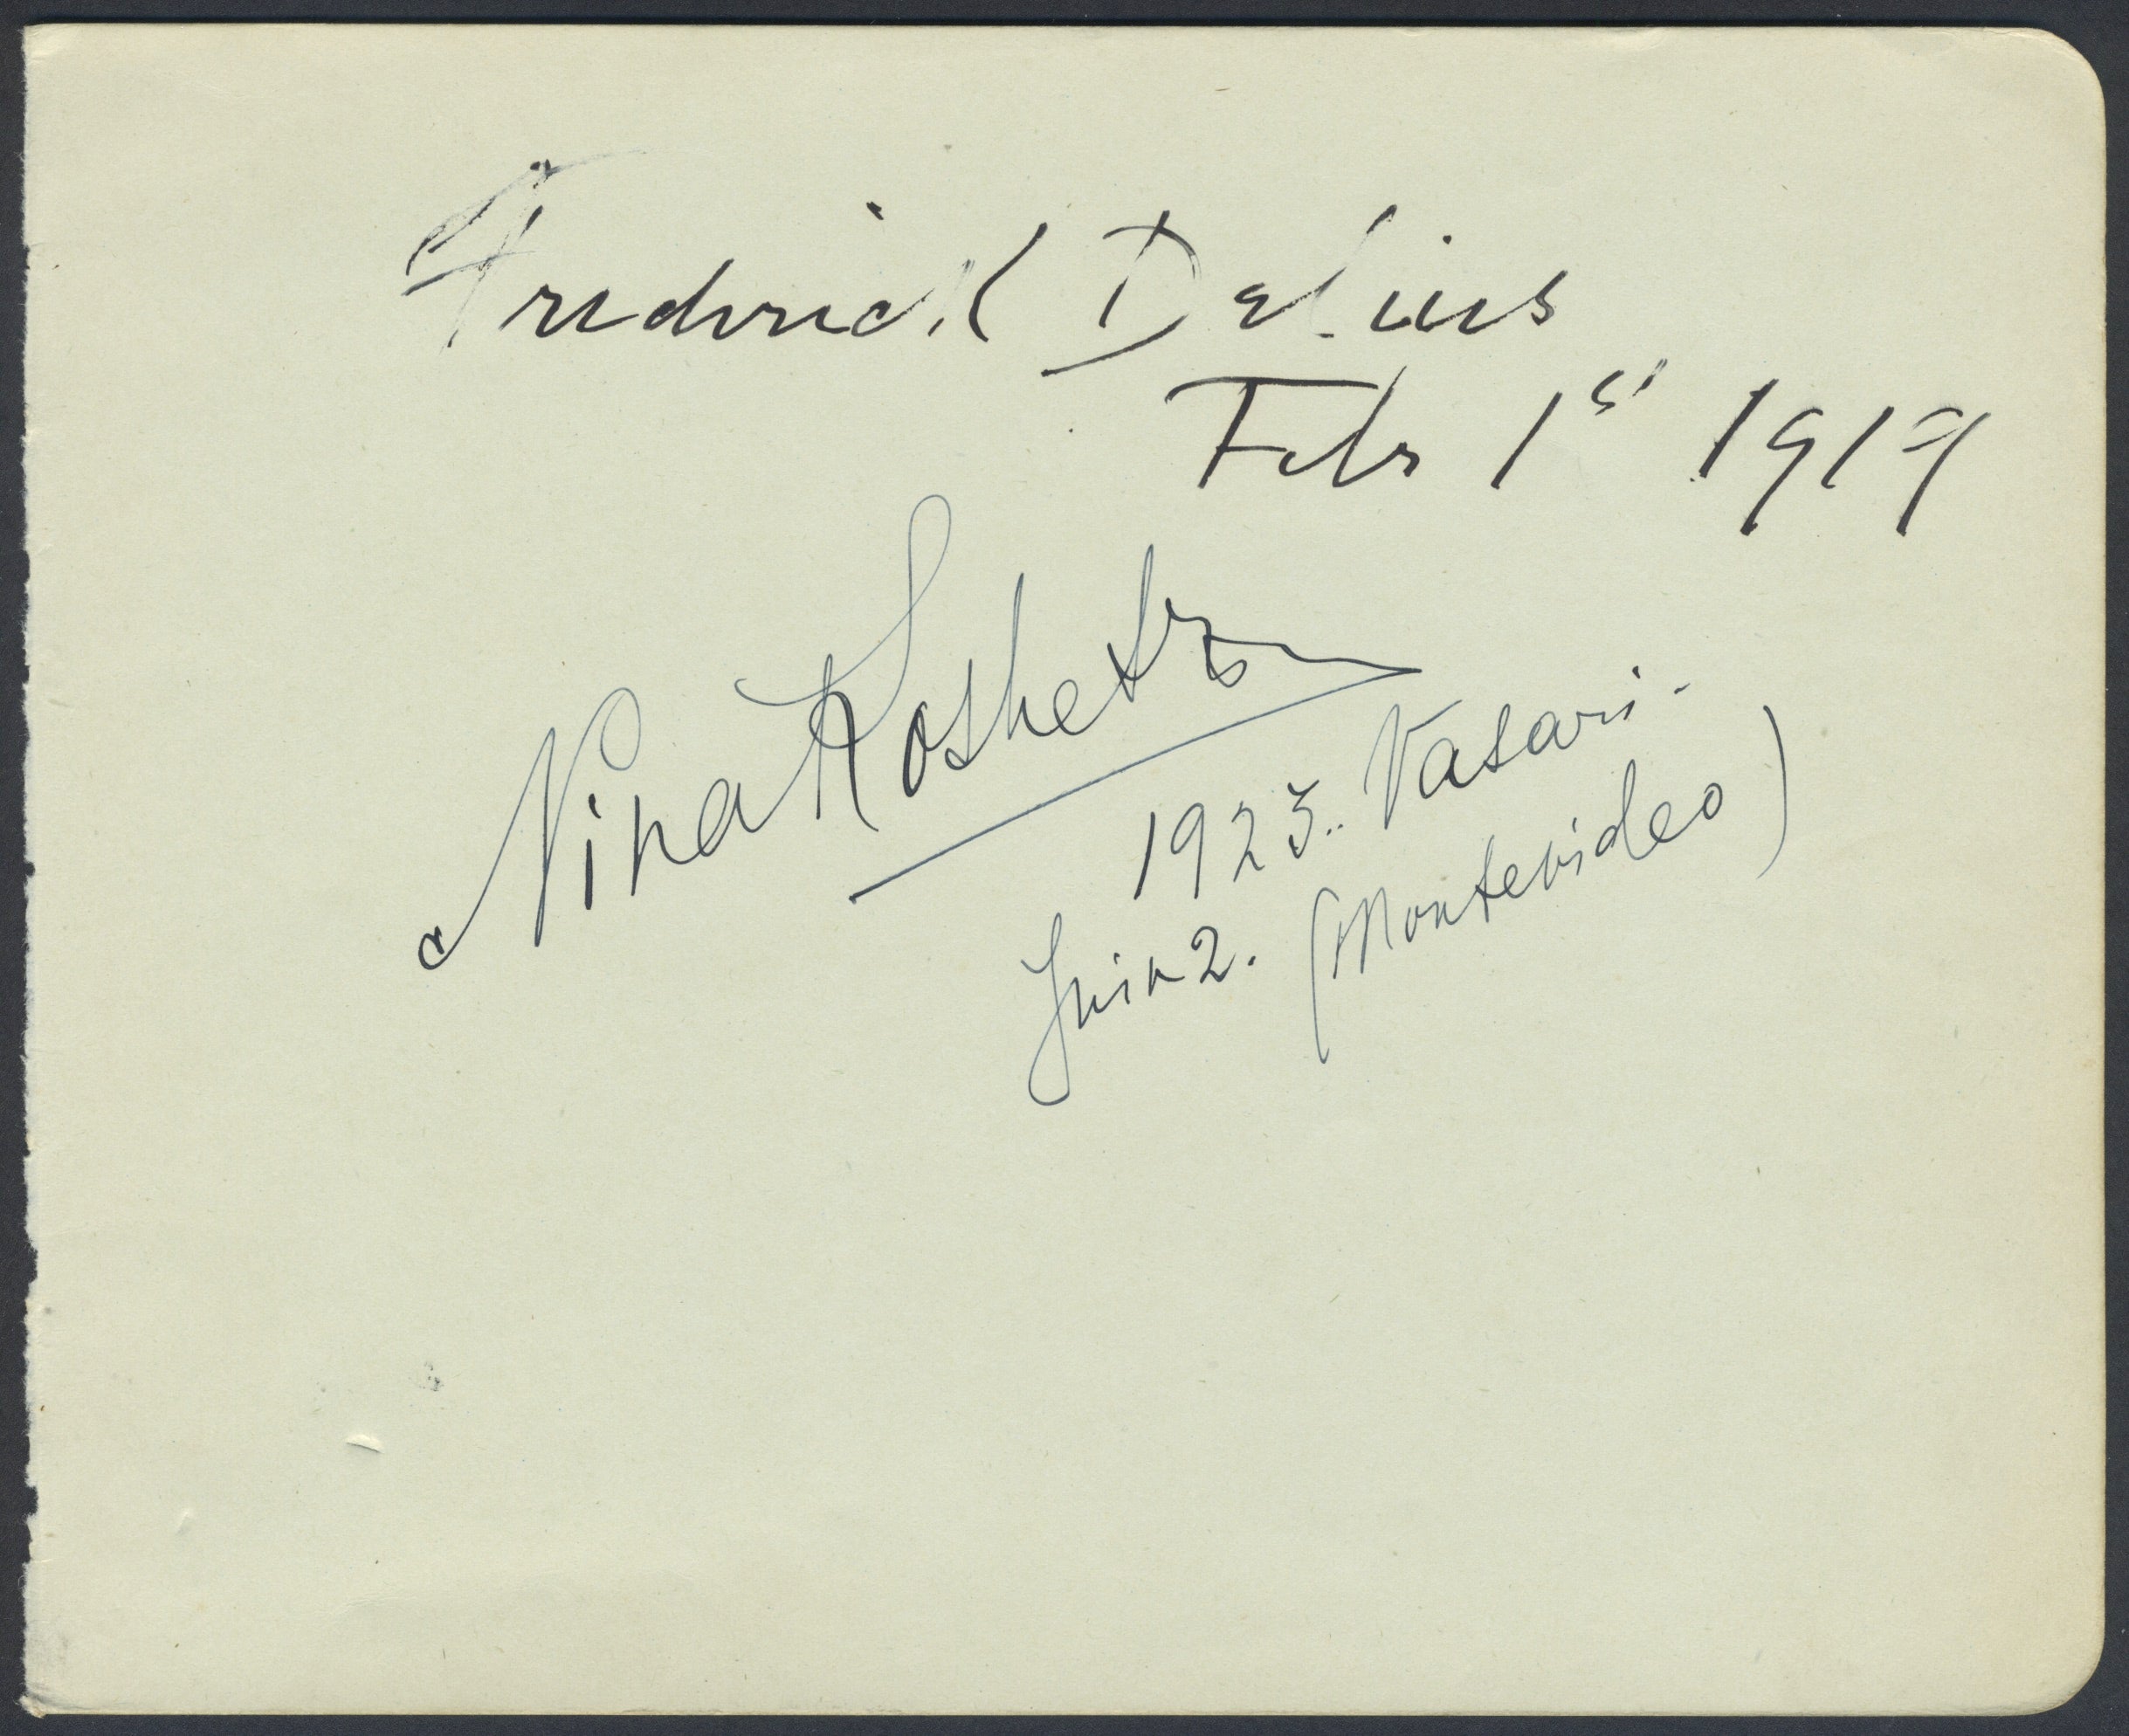 Frederick Delius
Feb 1st 1919
Nina Koshetz
1923. Vasari-
Juin 2. (Montevideo)